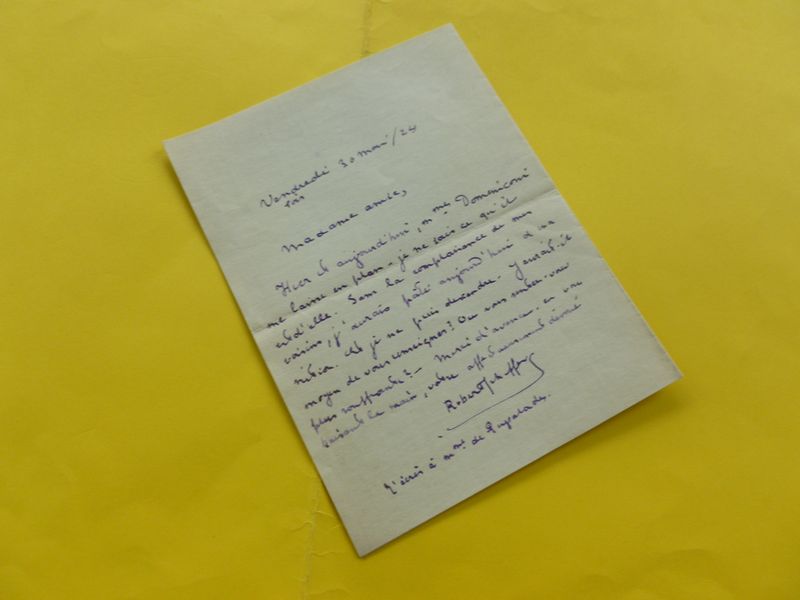 Vendredi 30 mai/24
soir
Madame amie,
Hier et aujourd'hui, Mme Domeniconi
me laisse en plan. Je ne sais ce qu'il
est d'elle. Sans la complaisance de mes
voisins, j'aurais pâti aujourd'hui à ma
Et je ne puis descendre. Y aurait-il
moyen de vous renseigner? Ou vous sentez-vous
plus souffrante? - Merci d'avance, en vous
baisant la main, votre affectueusement dévoué
Robert Scheffer
J'écris à Mme de